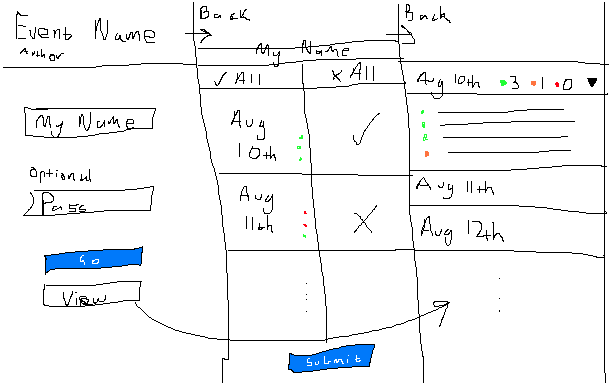 Event Name
Author
My Name
Optional
Pass
Go
View
Back
My Name
✓ All
x All
Aug
10th
✓
Aug
11th
X
Submit
Back
Aug 10th 3 1 0
Aug 11th
Aug 12th